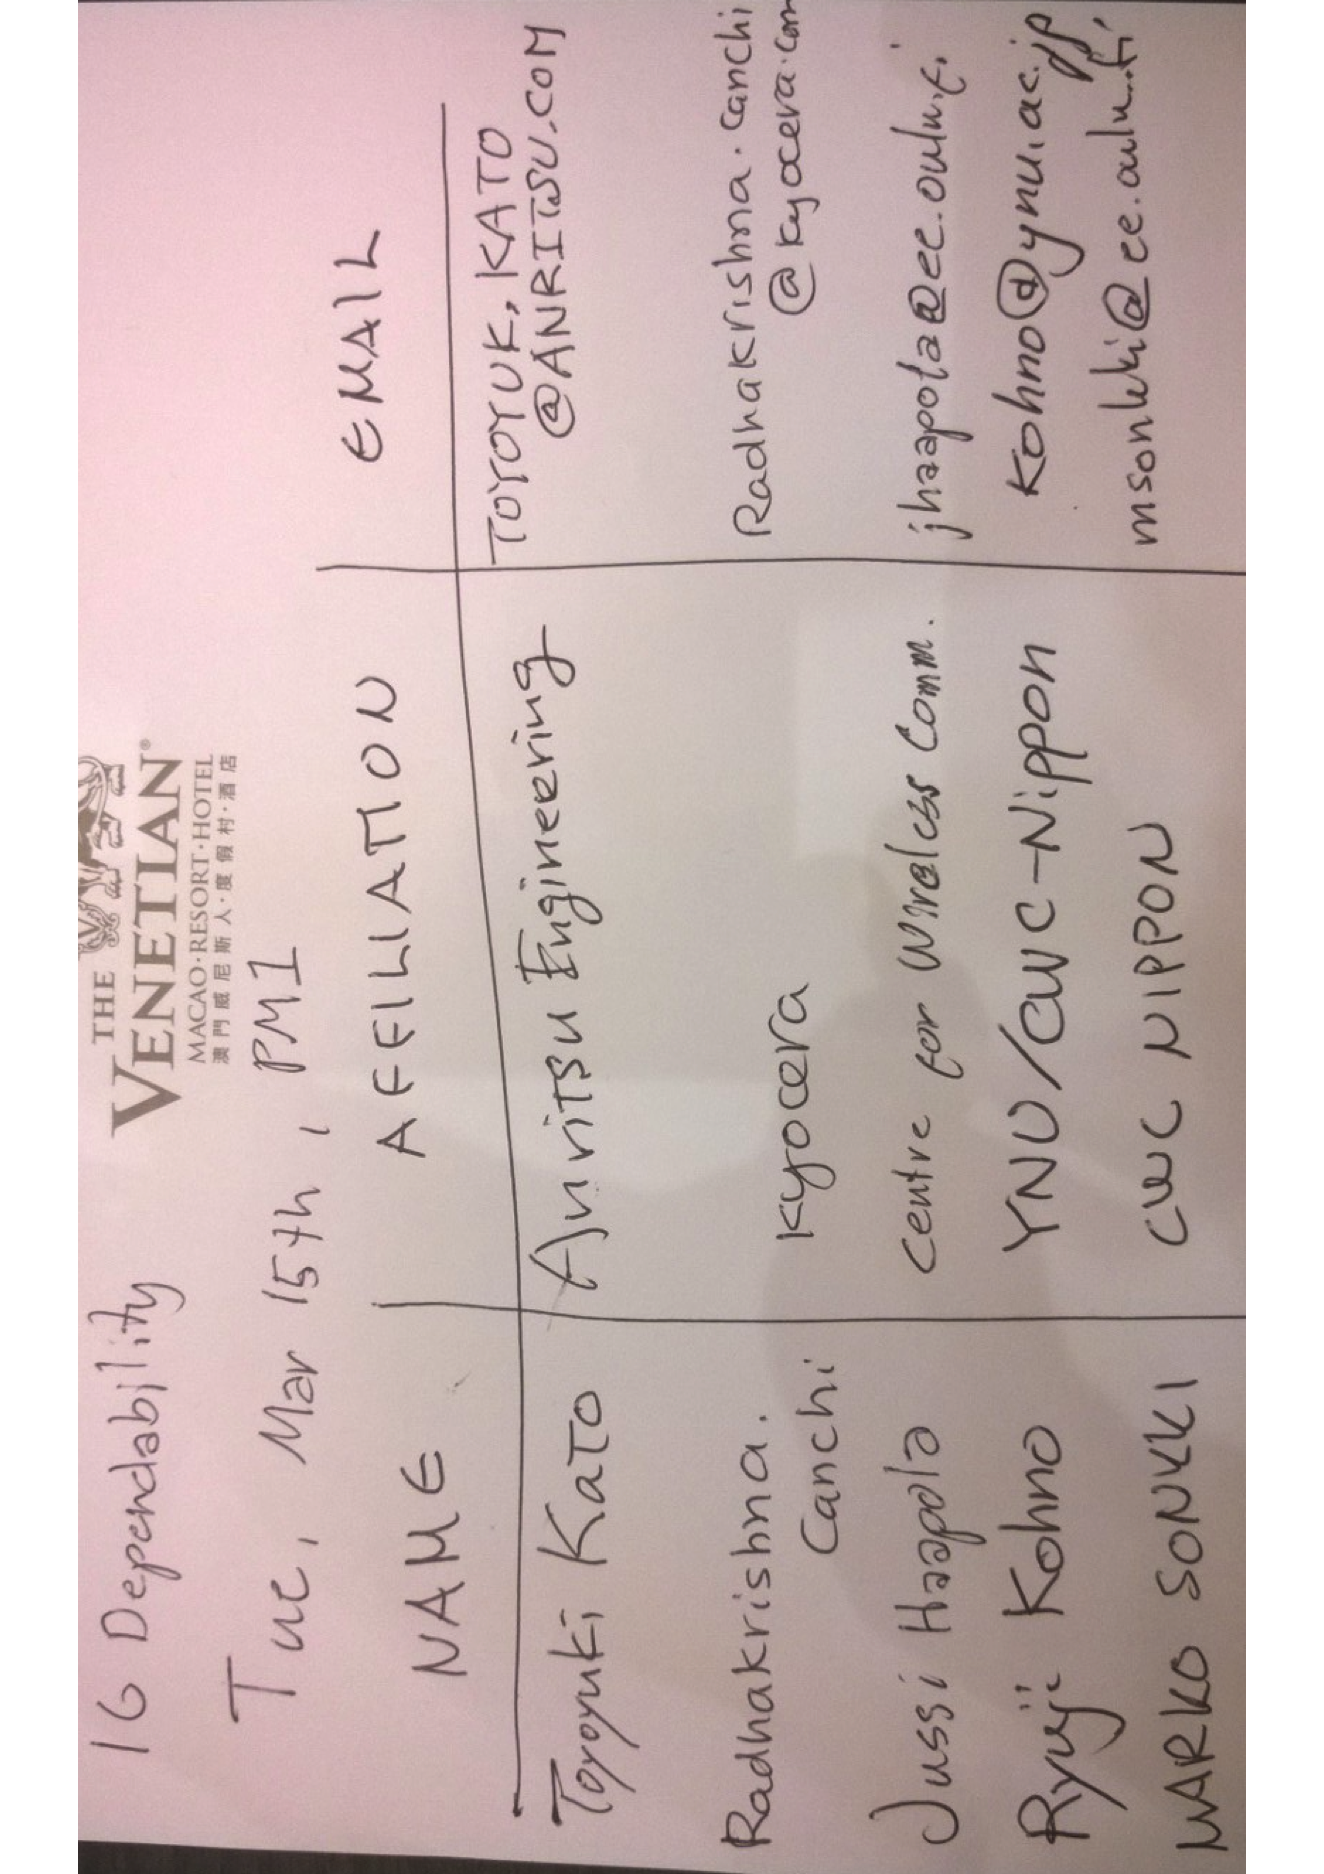 THE
VENETIAN®
MACAO·RESORT·HOTEL
澳門威尼斯人·度假村·酒店
IG Dependability
Tue, Mar 15th, PM1
NAME AFFILIATION EMAIL
Toyoyuki Kato Anritsu Engineering TOYOYUK.KATO
@ANRITSU.COM
Radhakrishna. Radhakrishna.canchi
Canchi Kyocera @kyocera.com
Jussi Haapola Centre for Wireless Comm. jhaapola@ee.oulu.fi
Ryuji Kohno YNU/CWC-Nippon Kohno@ynu.ac.jp
MARKO SONKKI CWC NIPPON msonkki@ee.oulu.fi